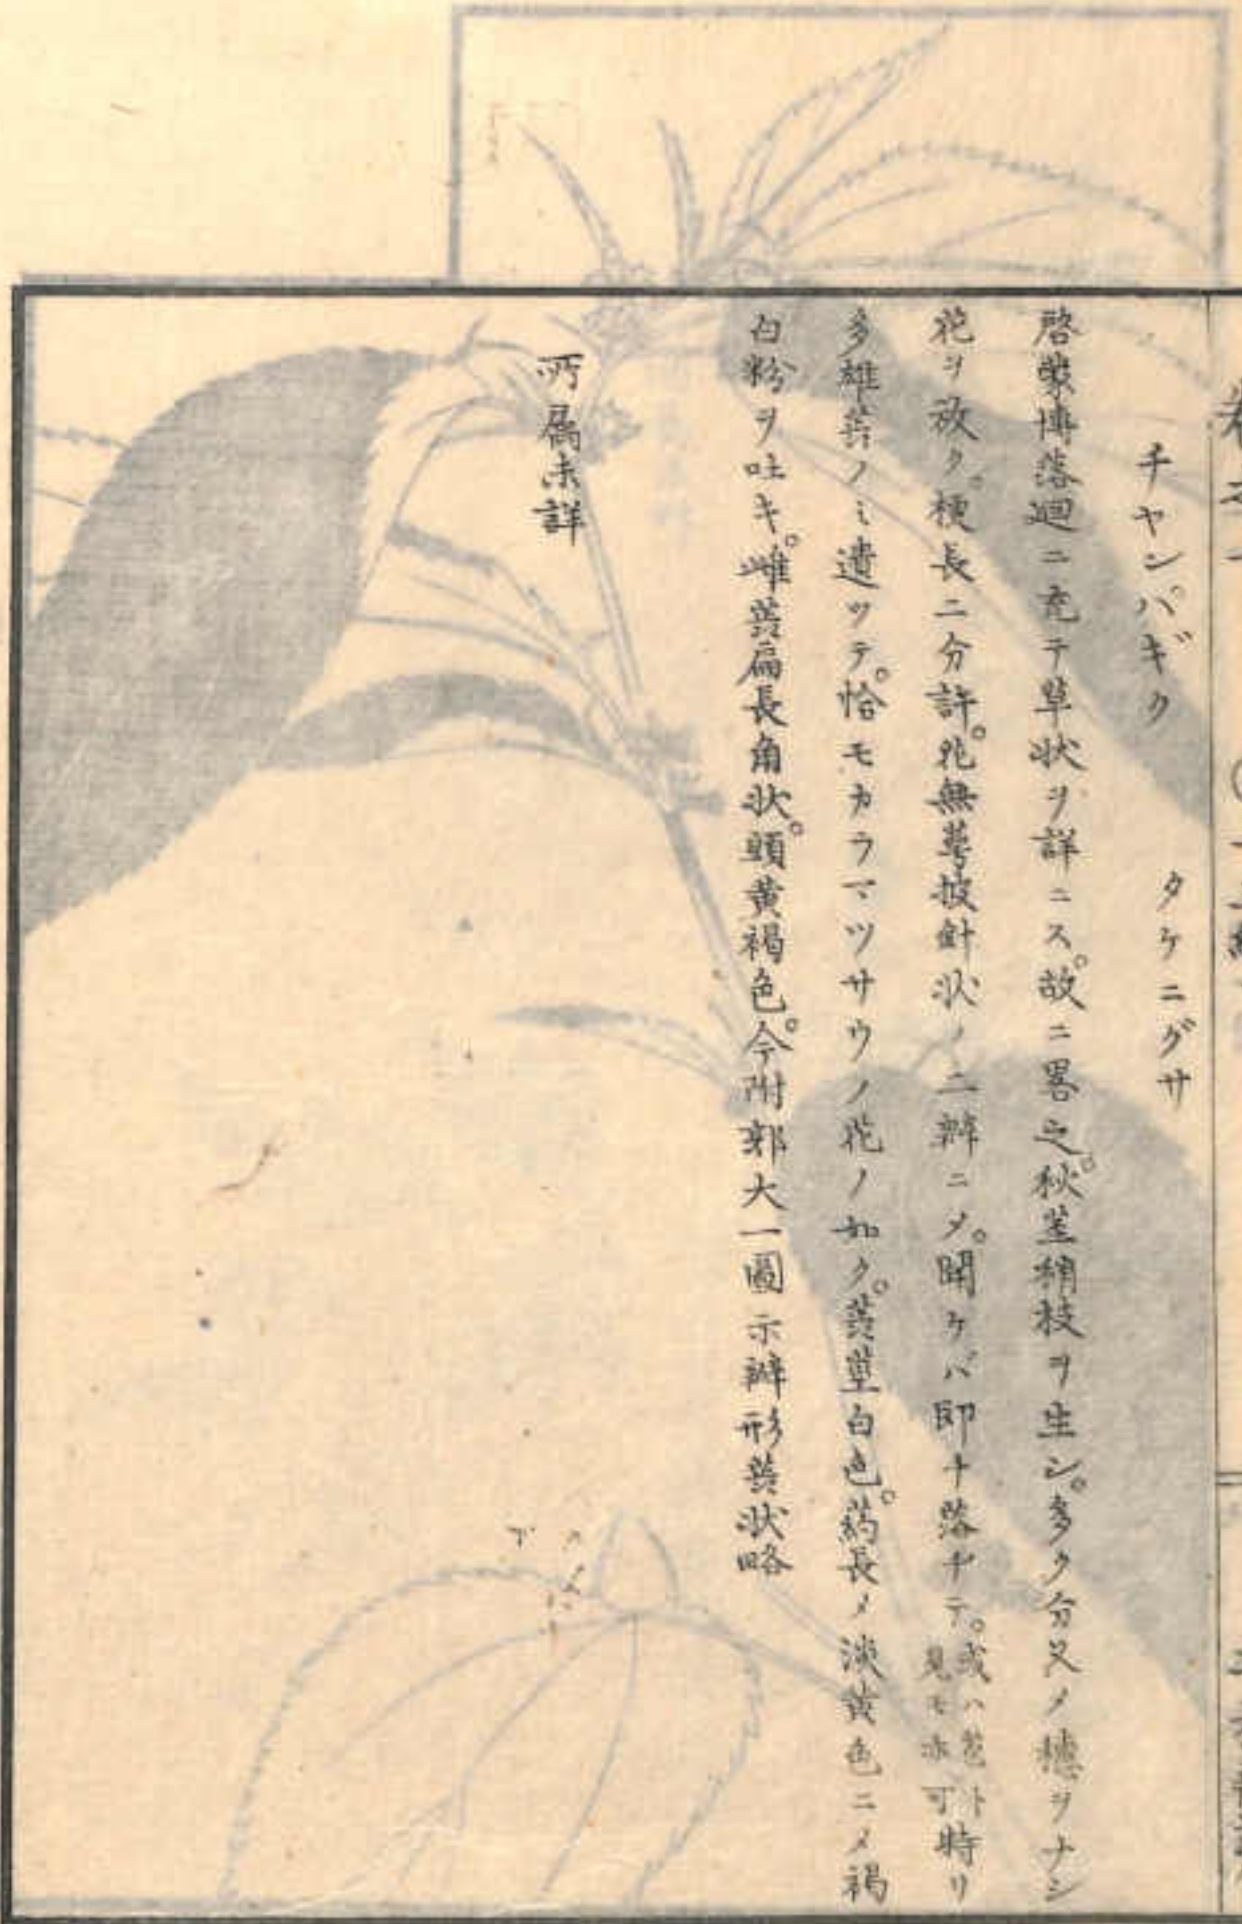 チヤンパギク　タケニグサ
啓蒙博落廻ニ充テ草状ヲ詳ニス。故ニ畧之。秋莖稍枝ヲ生シ。多ク分叉メ穗ヲナシ
花ヲ放ク。梗長二分許。花無萼披針状ノ二瓣ニメ。開ケバ即チ落チテ。或ハ苞ト見モ亦可特リ
多雄蕋ノミ遺ツテ。恰モカラマツサウノ花ノ如ク。蕋莖白色。葯長メ淡黄色ニメ褐
白粉ヲ吐キ。雌蕋扁長角状。頭黄褐色。今附郭大一圖示瓣形蕋状略
所属未詳